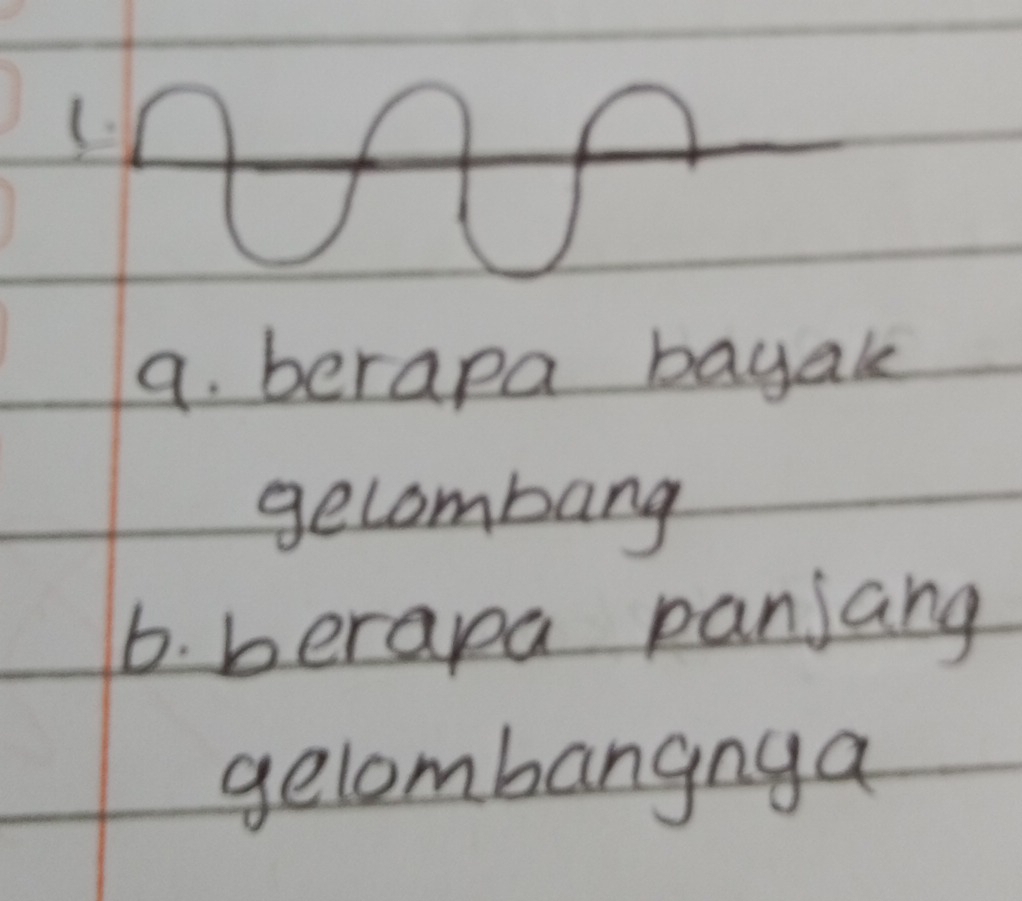 1.
a. berapa bayak
gelombang
b. berapa panjang
gelombangnya